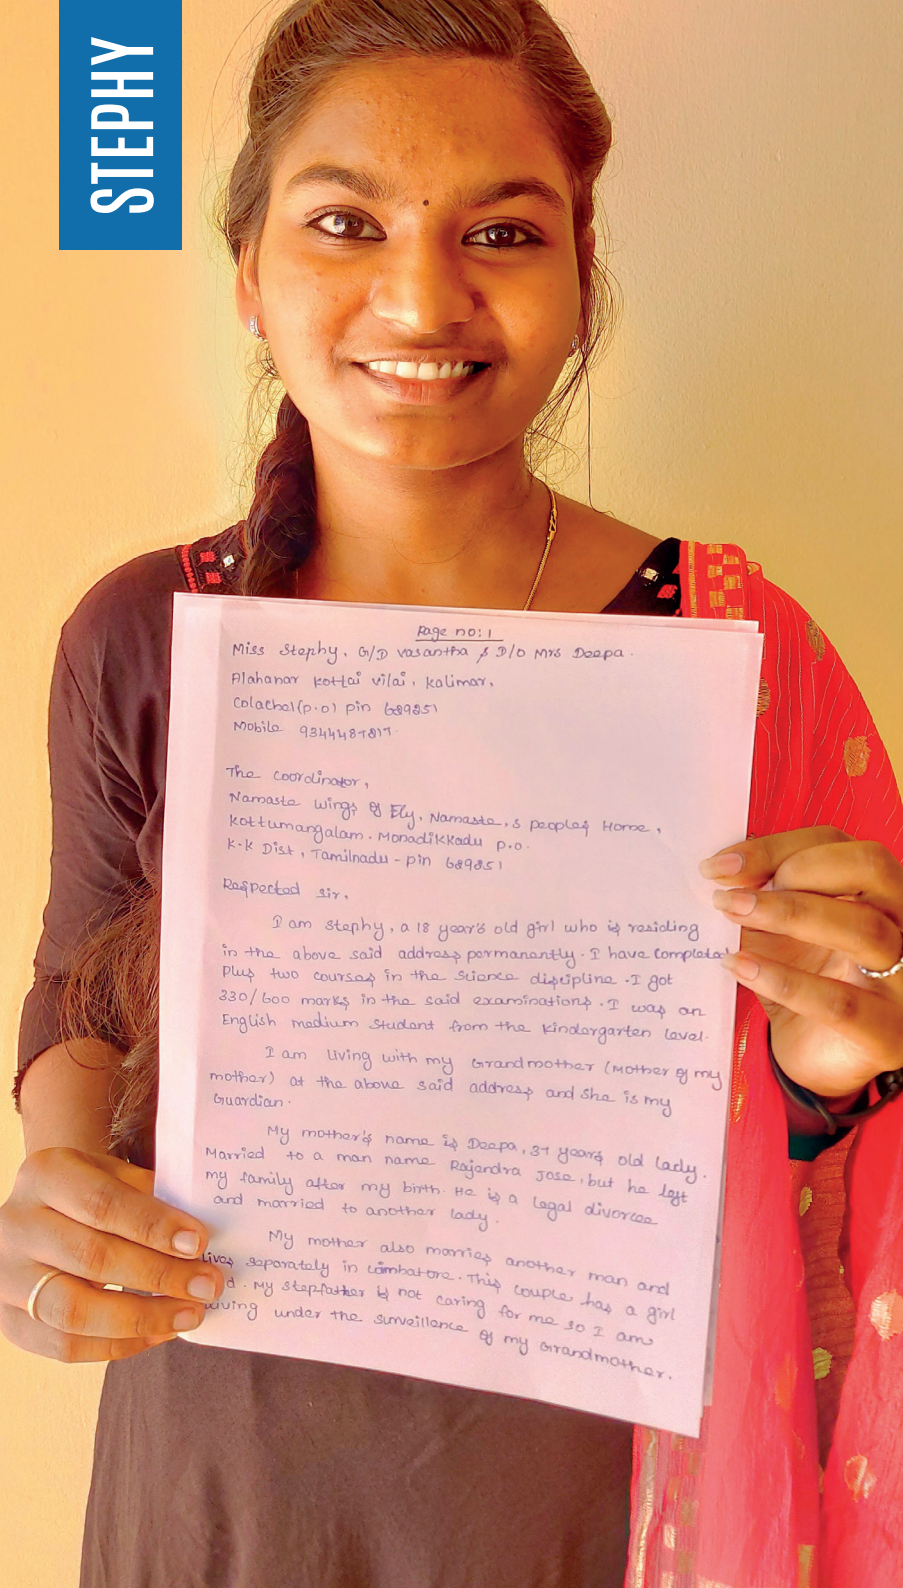 STEPHY
Page no: 1
Miss Stephy, G/D Vasantha & D/O Mrs Deepa.
Alahanar Kottai vilai, Kalimar,
Colachel (P.O) pin 629251
Mobile 9344487817
The Coordinator,
Namaste Wings of Ely, Namaste, s peoples Home,
Kottumangalam. Monadikkadu P.O.
K.K Dist, Tamilnadu - pin 629251
Respected Sir,
I am Stephy, a 18 year's old girl who is residing
in the above said address permanantly. I have completed
Plus two courses in the Science discipline. I got
330/600 marks in the said examinations. I was an
English medium Student from the Kindergarten level.
I am living with my Grandmother (Mother of my
mother) at the above said address and She is my
Guardian.
My mother's name is Deepa, 37 years old lady.
Married to a man name Rajendra Jose, but he left
my family after my birth. He is a legal divorcee
and married to another lady.
My mother also marries another man and
lives separately in Coimbatore. This couple has a girl
My Stepfather is not caring for me so I am
under the surveillance of my Grandmother.